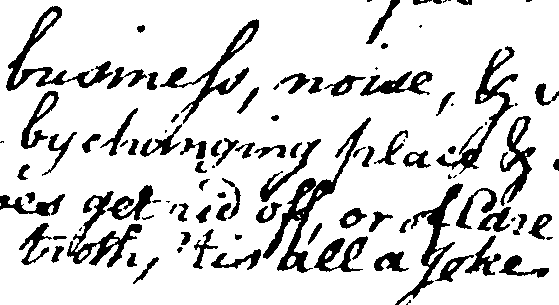 business, noise, &
by changing place &
get rid off, or of Care
troth, 'tis all a Joke.